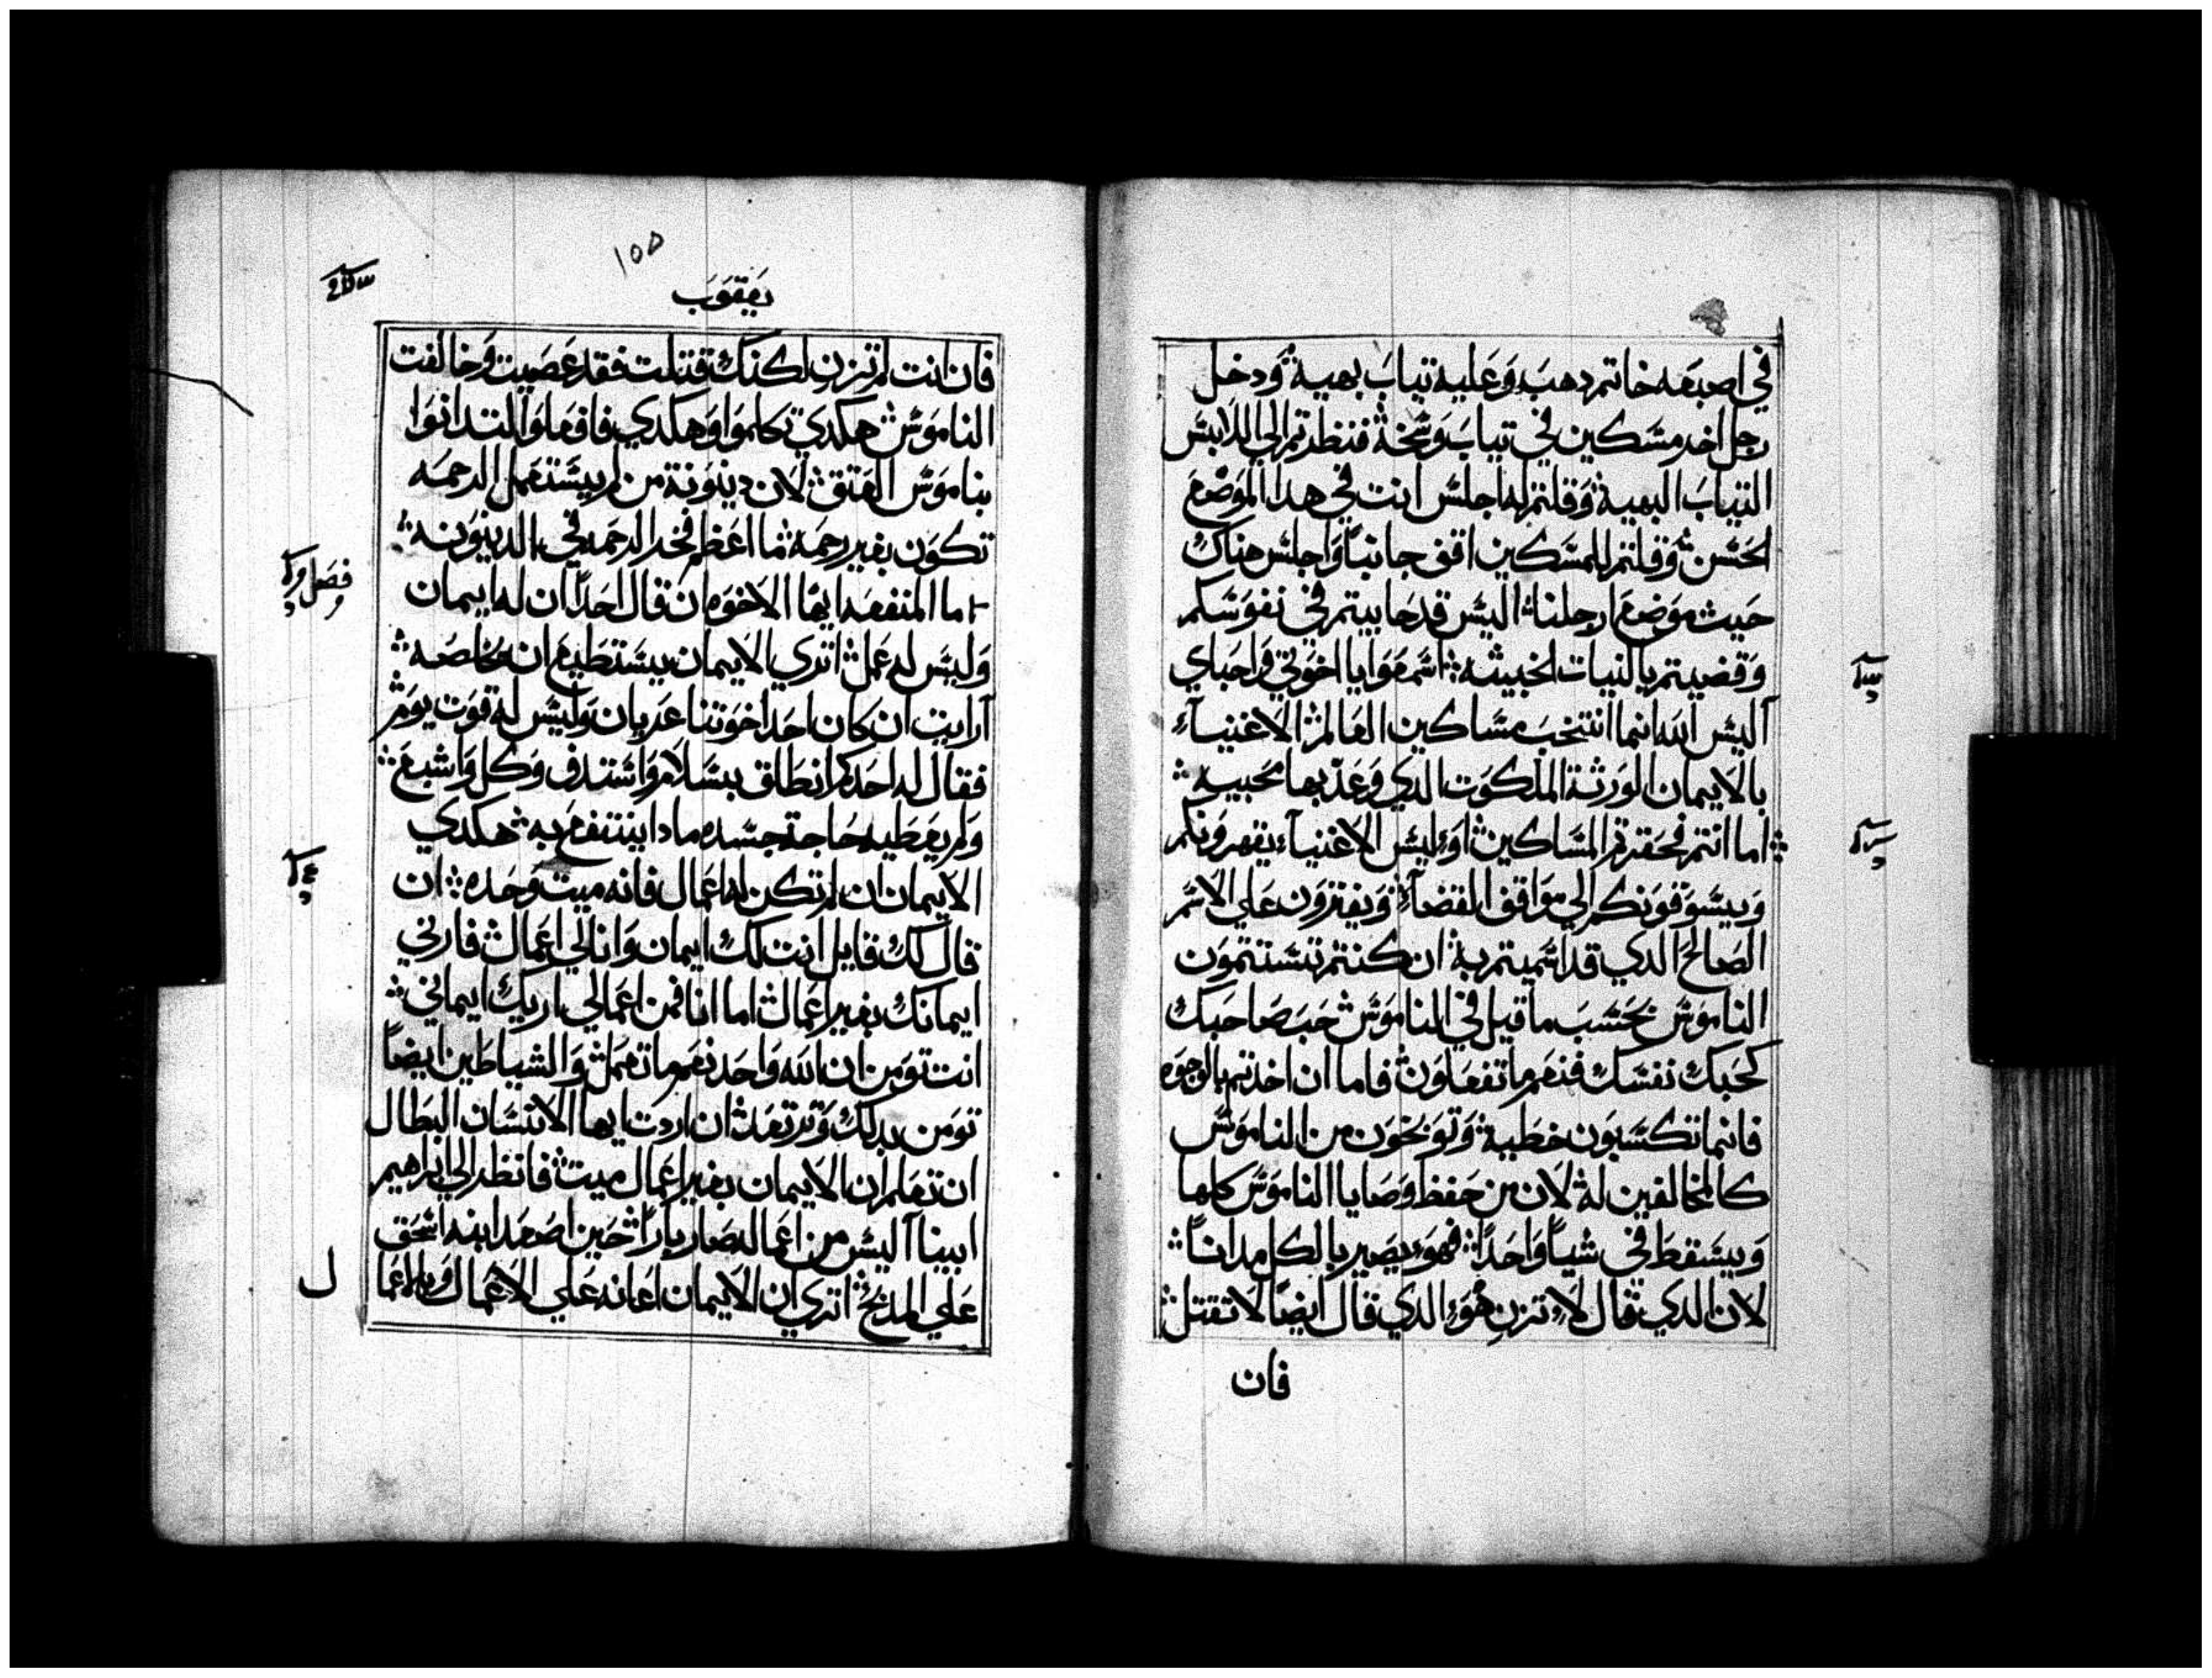 في اصبعه خاتم دهب وعليه تياب بهية ودخل
رجل اخر مسكين في تياب وسخة فنظرتم الي اللابس
التياب البهية وقلتم له اجلس انت في هدا الموضع
الحسن وقلتم للمسكين اقف جانباً واجلس هناك
حيث موضع ارجلنا اليس قد حابيتم في نفوسكم
وقضيتم بالنيات الخبيثه اسمعوا يا اخوتي واحباي
آليس الله انما انتخب مساكين العالم الاغنيآء
بالايمان الورثة الملكوت الدي وعد بها محبيه
اما انتم فحقرتم المساكين اوليس الاغنيآء يقهرونكم
ويسوقونكم الي مواقف القضآء ويفترون علي الاسم
الصالح الدي قد اسميتم به ان كنتم تستتمون
الناموس بحسب ما قيل في الناموس حب صاحبك
كحبك نفسك فنعم ما تفعلون فاما ان اخدتم بالوجوه
فانما تكسبون خطية وتوبخون من الناموس
كالمخالفين له لان من حفظ وصايا الناموس كلها
ويسقط في شياً واحداً فهو يصير بالكل مداناً
لان الدي قال لا تزن هو الدي قال ايضاً لا تقتل
فان
١٥٥
يعقوب
فان انت لم تزن لكنك قتلت فقد عصيت وخالفت
الناموس هكدي تكلموا وهكدي فافعلوا لتدانوا
بناموس العتق لان دينونة من لم يستعمل الرحمه
تكون بغير رحمة ما اعظم فخر الرحمه في الدينونه
ما المنفعه ايها الاخوه ان قال احداً ان له ايمان
وليس له عمل اتري الايمان يستطيع ان يخلصه
آرايت ان كان احد اخوتنا عريان وليس له قوت يوم
فقال له احدكم انطلق بسلام واستدف وكل واشبع
ولم يعطيه حاجة جسده مادا ينتفع به هكدي
الايمان ان لم تكن له اعمال فانه ميت وحده ان
قال لك قايل انت لك ايمان وانا لي اعمال فارني
ايمانك بغير اعمال اما انا فمن اعمالي اريك ايماني
انت تومن ان الله واحد نعم ما تعمل والشياطين ايضاً
تومن بدلك وترتعد ان اردت ايها الانسان البطال
ان تعلم ان الايمان بغير اعمال ميت فانظر الي ابراهيم
ابينا آليس من اعماله صار باراً حين اصعد ابنه اسحق
علي المدبح اتري ان الايمان اعانه علي الاعمال وبالاعما
ل